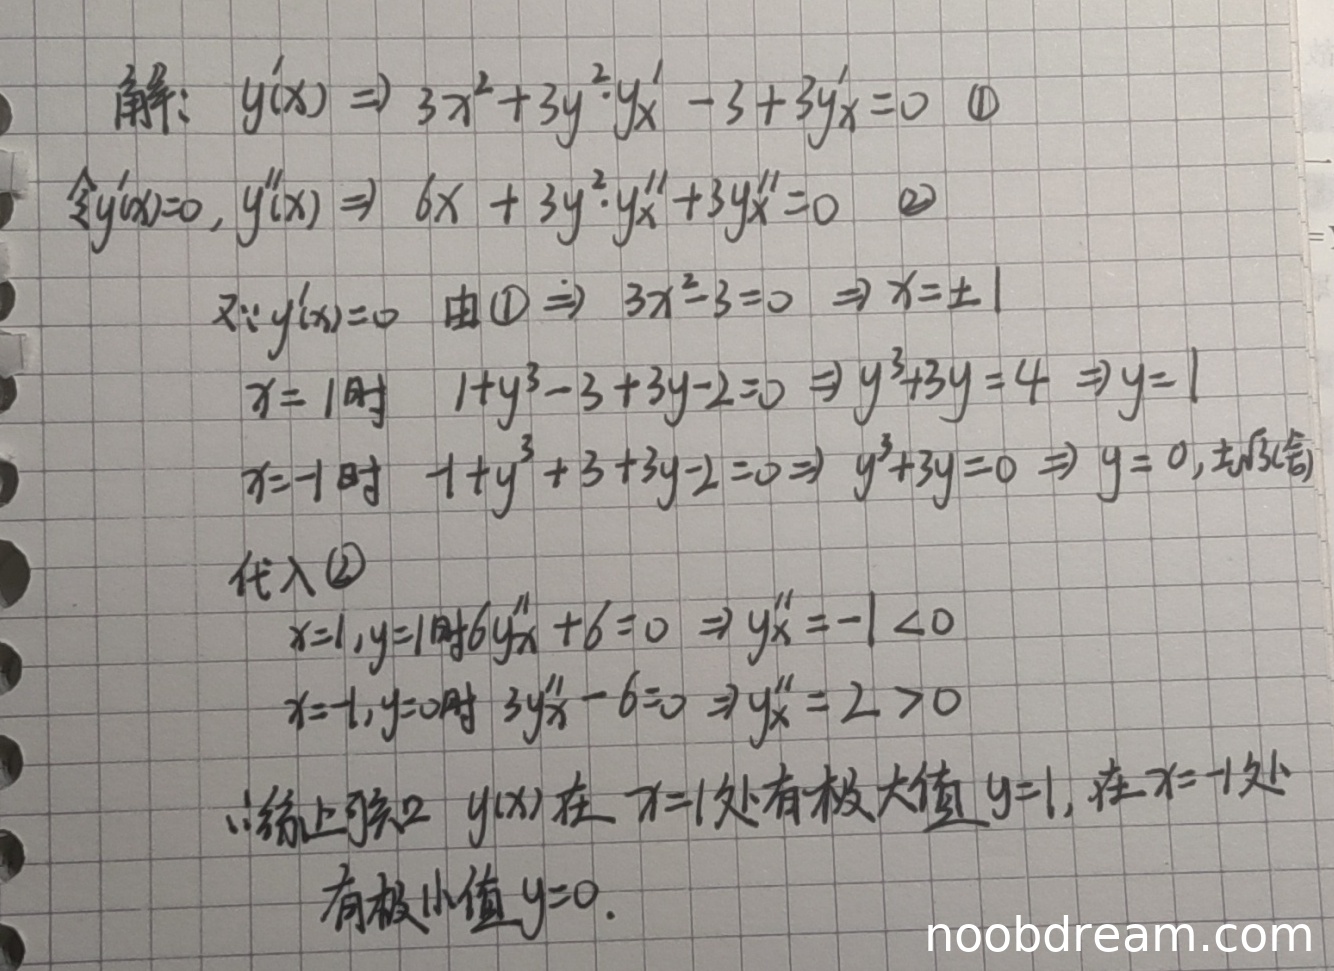 解: y'(x) ⇒ 3x²+3y²·y'x −3+3y'x=0 ①
令y'(x)=0, y''(x) ⇒ 6x + 3y²·y''x+3y''x=0 ②
又∵y'(x)=0 由① ⇒ 3x²−3=0 ⇒ x=±1
x=1时 1+y³−3+3y−2=0 ⇒ y³+3y=4 ⇒ y=1
x=−1时 −1+y³+3+3y−2=0 ⇒ y³+3y=0 ⇒ y=0, ±√3(舍)
代入②
x=1, y=1时 6y''x+6=0 ⇒ y''x=−1<0
x=−1, y=0时 3y''x−6=0 ⇒ y''x=2>0
∴综上所述 y(x)在 x=1处有极大值 y=1, 在 x=−1处
有极小值 y=0.
noobdream.com